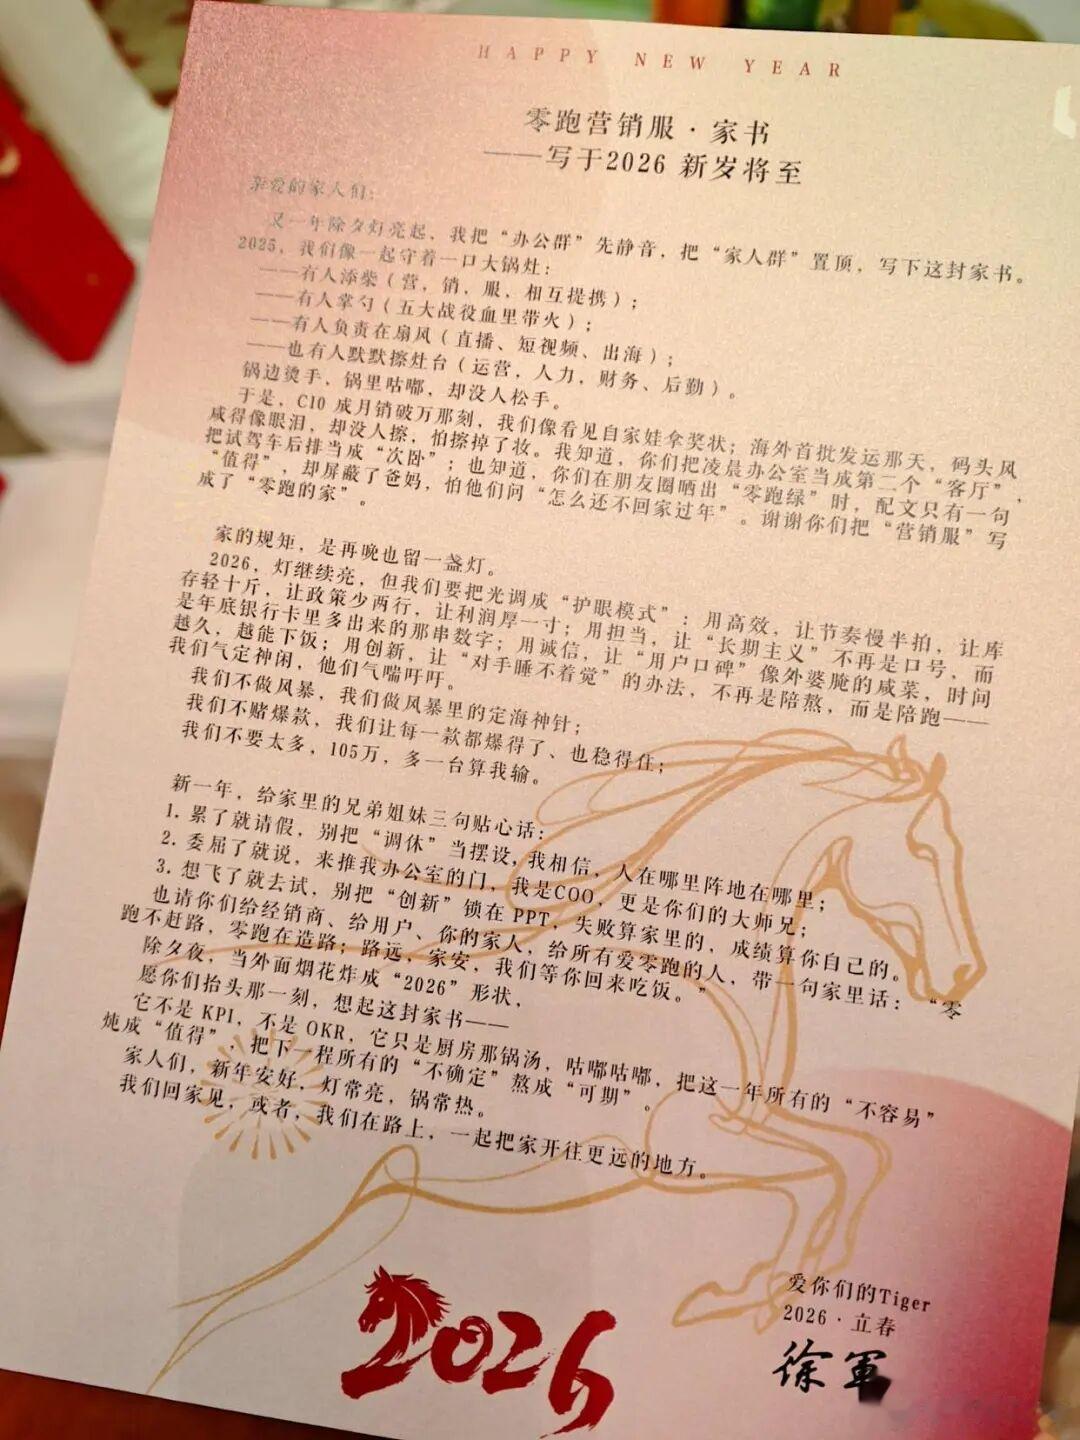 HAPPY NEW YEAR
零跑营销服·家书
——写于2026 新岁将至
亲爱的家人们：
又一年除夕灯亮起，我把“办公群”先静音，把“家人群”置顶，写下这封家书。
2025，我们像一起守着一口大锅灶：
——有人添柴（营，销，服，相互提携）；
——有人掌勺（五大战役血里带火）；
——有人负责在扇风（直播、短视频、出海）；
——也有人默默擦灶台（运营，人力，财务、后勤）。
锅边烫手，锅里咕嘟，却没人松手。
于是，C10 成月销破万那刻，我们像看见自家娃拿奖状；海外首批发运那天，码头风
咸得像眼泪，却没人擦，怕擦掉了妆。我知道，你们把凌晨办公室当成第二个“客厅”，
把试驾车后排当成“次卧”；也知道，你们在朋友圈晒出“零跑绿”时，配文只有一句
“值得”，却屏蔽了爸妈，怕他们问“怎么还不回家过年”。谢谢你们把“营销服”写
成了“零跑的家”。
家的规矩，是再晚也留一盏灯。
2026，灯继续亮，但我们要把光调成“护眼模式”：用高效，让节奏慢半拍，让库
存轻十斤，让政策少两行，让利润厚一寸；用担当，让“长期主义”不再是口号，而
是年底银行卡里多出来的那串数字；用诚信，让“用户口碑”像外婆腌的咸菜，时间
越久，越能下饭；用创新，让“对手睡不着觉”的办法，不再是陪熬，而是陪跑——
我们气定神闲，他们气喘吁吁。
我们不做风暴，我们做风暴里的定海神针；
我们不赌爆款，我们让每一款都爆得了、也稳得住；
我们不要太多，105万，多一台算我输。
新一年，给家里的兄弟姐妹三句贴心话：
1. 累了就请假，别把“调休”当摆设，我相信，人在哪里阵地在哪里；
2. 委屈了就说，来推我办公室的门，我是COO，更是你们的大师兄；
3. 想飞了就去试，别把“创新”锁在 PPT，失败算家里的，成绩算你自己的。
也请你们给经销商、给用户、你的家人，给所有爱零跑的人，带一句家里话：“零
跑不赶路，零跑在造路；路远，家安，我们等你回来吃饭。”
除夕夜，当外面烟花炸成“2026”形状，
愿你们抬头那一刻，想起这封家书——
它不是 KPI，不是 OKR，它只是厨房那锅汤，咕嘟咕嘟，把这一年所有的“不容易”
炖成“值得”，把下一程所有的“不确定”熬成“可期”。
家人们，新年安好，灯常亮，锅常热。
我们回家见，或者，我们在路上，一起把家开往更远的地方。
爱你们的Tiger
2026·立春
徐軍
2026